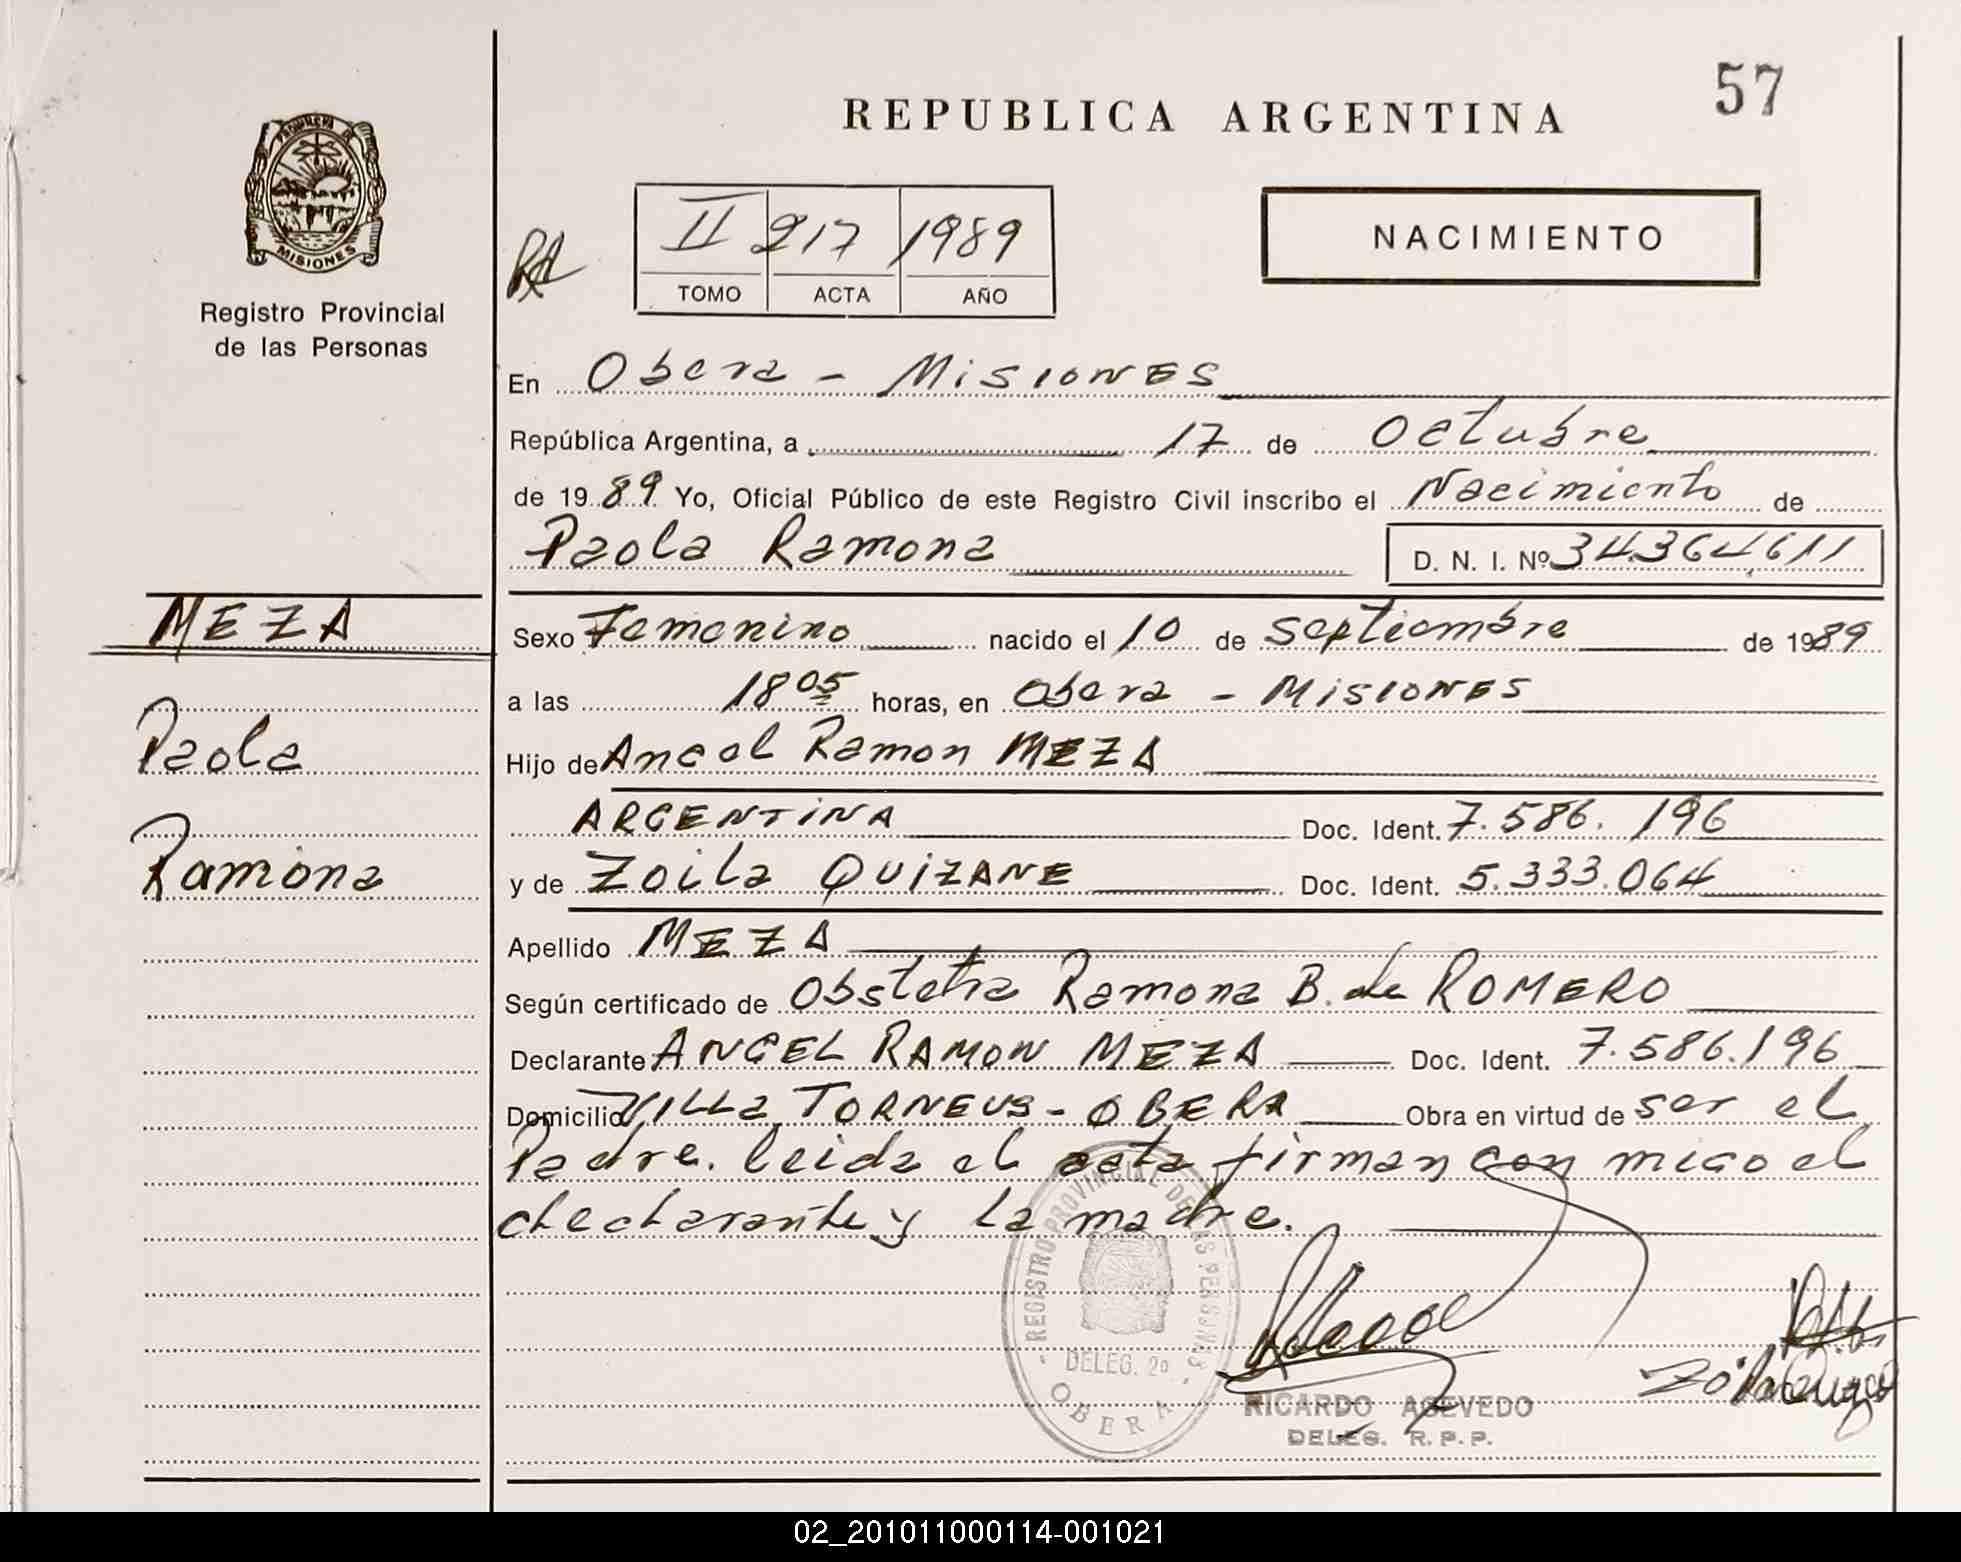 57
REPUBLICA ARGENTINA
PROVINCIA DE MISIONES
Registro Provincial
de las Personas
II 217 1989
TOMO ACTA AÑO
NACIMIENTO
En Obera - MISIONES
República Argentina, a 17 de Octubre
de 1989 Yo, Oficial Público de este Registro Civil inscribo el Nacimiento de
Paola Ramona D. N. I. Nº 34.364.611
MEZA
Paola
Ramona
Sexo Femenino nacido el 10 de Septiembre de 1989
a las 18 05 horas, en Obera - MISIONES
Hijo de Angel Ramon MEZA
ARGENTINA Doc. Ident. 7.586.196
y de Zoila QUIZANE Doc. Ident. 5.333.064
Apellido MEZA
Según certificado de Obstetra Ramona B. de ROMERO
Declarante ANGEL RAMON MEZA Doc. Ident. 7.586.196
Domicilio VILLA TORNEUS - OBERA Obra en virtud de ser el
Padre. leida el acta firman con migo el
declarante y la madre.
REGISTRO PROVINCIAL DE LAS PERSONAS
DELEG. 2a
OBERA
RICARDO ACEVEDO
DELEG. R.P.P.
Zoila
02_201011000114-001021